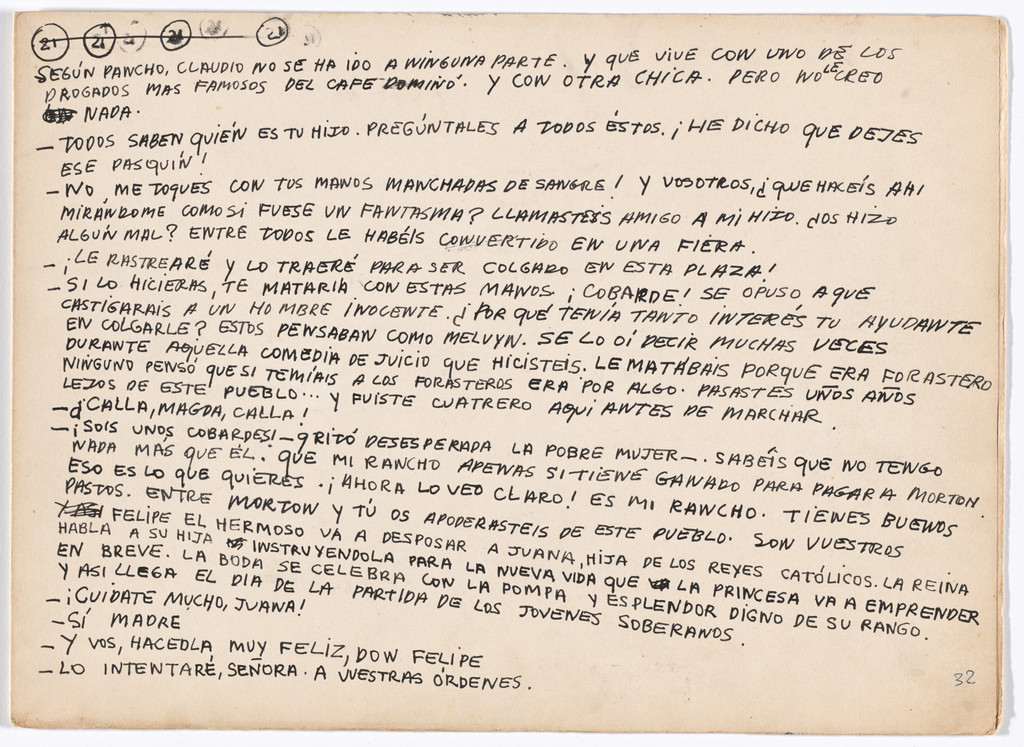 21 21 21 21 21 21
SEGÚN PANCHO, CLAUDIO NO SE HA IDO A NINGUNA PARTE. Y QUE VIVE CON UNO DE LOS
DROGADOS MAS FAMOSOS DEL CAFE "DOMINÓ". Y CON OTRA CHICA. PERO NO LE CREO
NADA.
— TODOS SABEN QUIÉN ES TU HIJO. PREGÚNTALES A TODOS ÉSTOS. ¡HE DICHO QUE DEJES
ESE PASQUÍN!
— NO ME TOQUES CON TUS MANOS MANCHADAS DE SANGRE! Y VOSOTROS, ¿QUE HACEÍS AHI
MIRÁNDOME COMO SI FUESE UN FANTASMA? LLAMASTEÍS AMIGO A MI HIJO. ¿OS HIZO
ALGUN MAL? ENTRE TODOS LE HABÉIS CONVERTIDO EN UNA FIERA.
— ¡LE RASTREARÉ Y LO TRAERÉ PARA SER COLGADO EN ESTA PLAZA!
— SI LO HICIERAS, TE MATARÍA CON ESTAS MANOS. ¡COBARDE! SE OPUSO A QUE
CASTIGARAIS A UN HOMBRE INOCENTE. ¿POR QUÉ TENÍA TANTO INTERÉS TU AYUDANTE
EN COLGARLE? ESTOS PENSABAN COMO MELVYN. SE LO OÍ DECIR MUCHAS VECES
DURANTE AQUELLA COMEDIA DE JUICIO QUE HICISTEIS. LE MATÁBAIS PORQUE ERA FORASTERO
NINGUNO PENSÓ QUE SI TEMÍAIS A LOS FORASTEROS ERA POR ALGO. PASASTES UÑOS AÑOS
LEJOS DE ESTE PUEBLO... Y FUISTE CUATRERO AQUI ANTES DE MARCHAR.
— ¡CALLA, MAGDA, CALLA!
— ¡SOIS UNOS COBARDES! — GRITÓ DESESPERADA LA POBRE MUJER —. SABÉIS QUE NO TENGO
NADA MÁS QUE ÉL. QUE MI RANCHO APENAS SI TIENE GANADO PARA PAGAR A MORTON.
ESO ES LO QUE QUIERES. ¡AHORA LO VEO CLARO! ES MI RANCHO. TIENES BUENOS
PASTOS. ENTRE MORTON Y TÚ OS APODERASTEIS DE ESTE PUEBLO. SON VUESTROS
FELIPE EL HERMOSO VA A DESPOSAR A JUANA, HIJA DE LOS REYES CATÓLICOS. LA REINA
HABLA A SU HIJA INSTRUYENDOLA PARA LA NUEVA VIDA QUE LA PRINCESA VA A EMPRENDER
EN BREVE. LA BODA SE CELEBRA CON LA POMPA Y ESPLENDOR DIGNO DE SU RANGO.
Y ASI LLEGA EL DIA DE LA PARTIDA DE LOS JOVENES SOBERANOS.
— ¡CUIDATE MUCHO, JUANA!
— SÍ MADRE
— Y VOS, HACEDLA MUY FELIZ, DON FELIPE
— LO INTENTARÉ, SEÑORA. A VUESTRAS ÓRDENES.
32